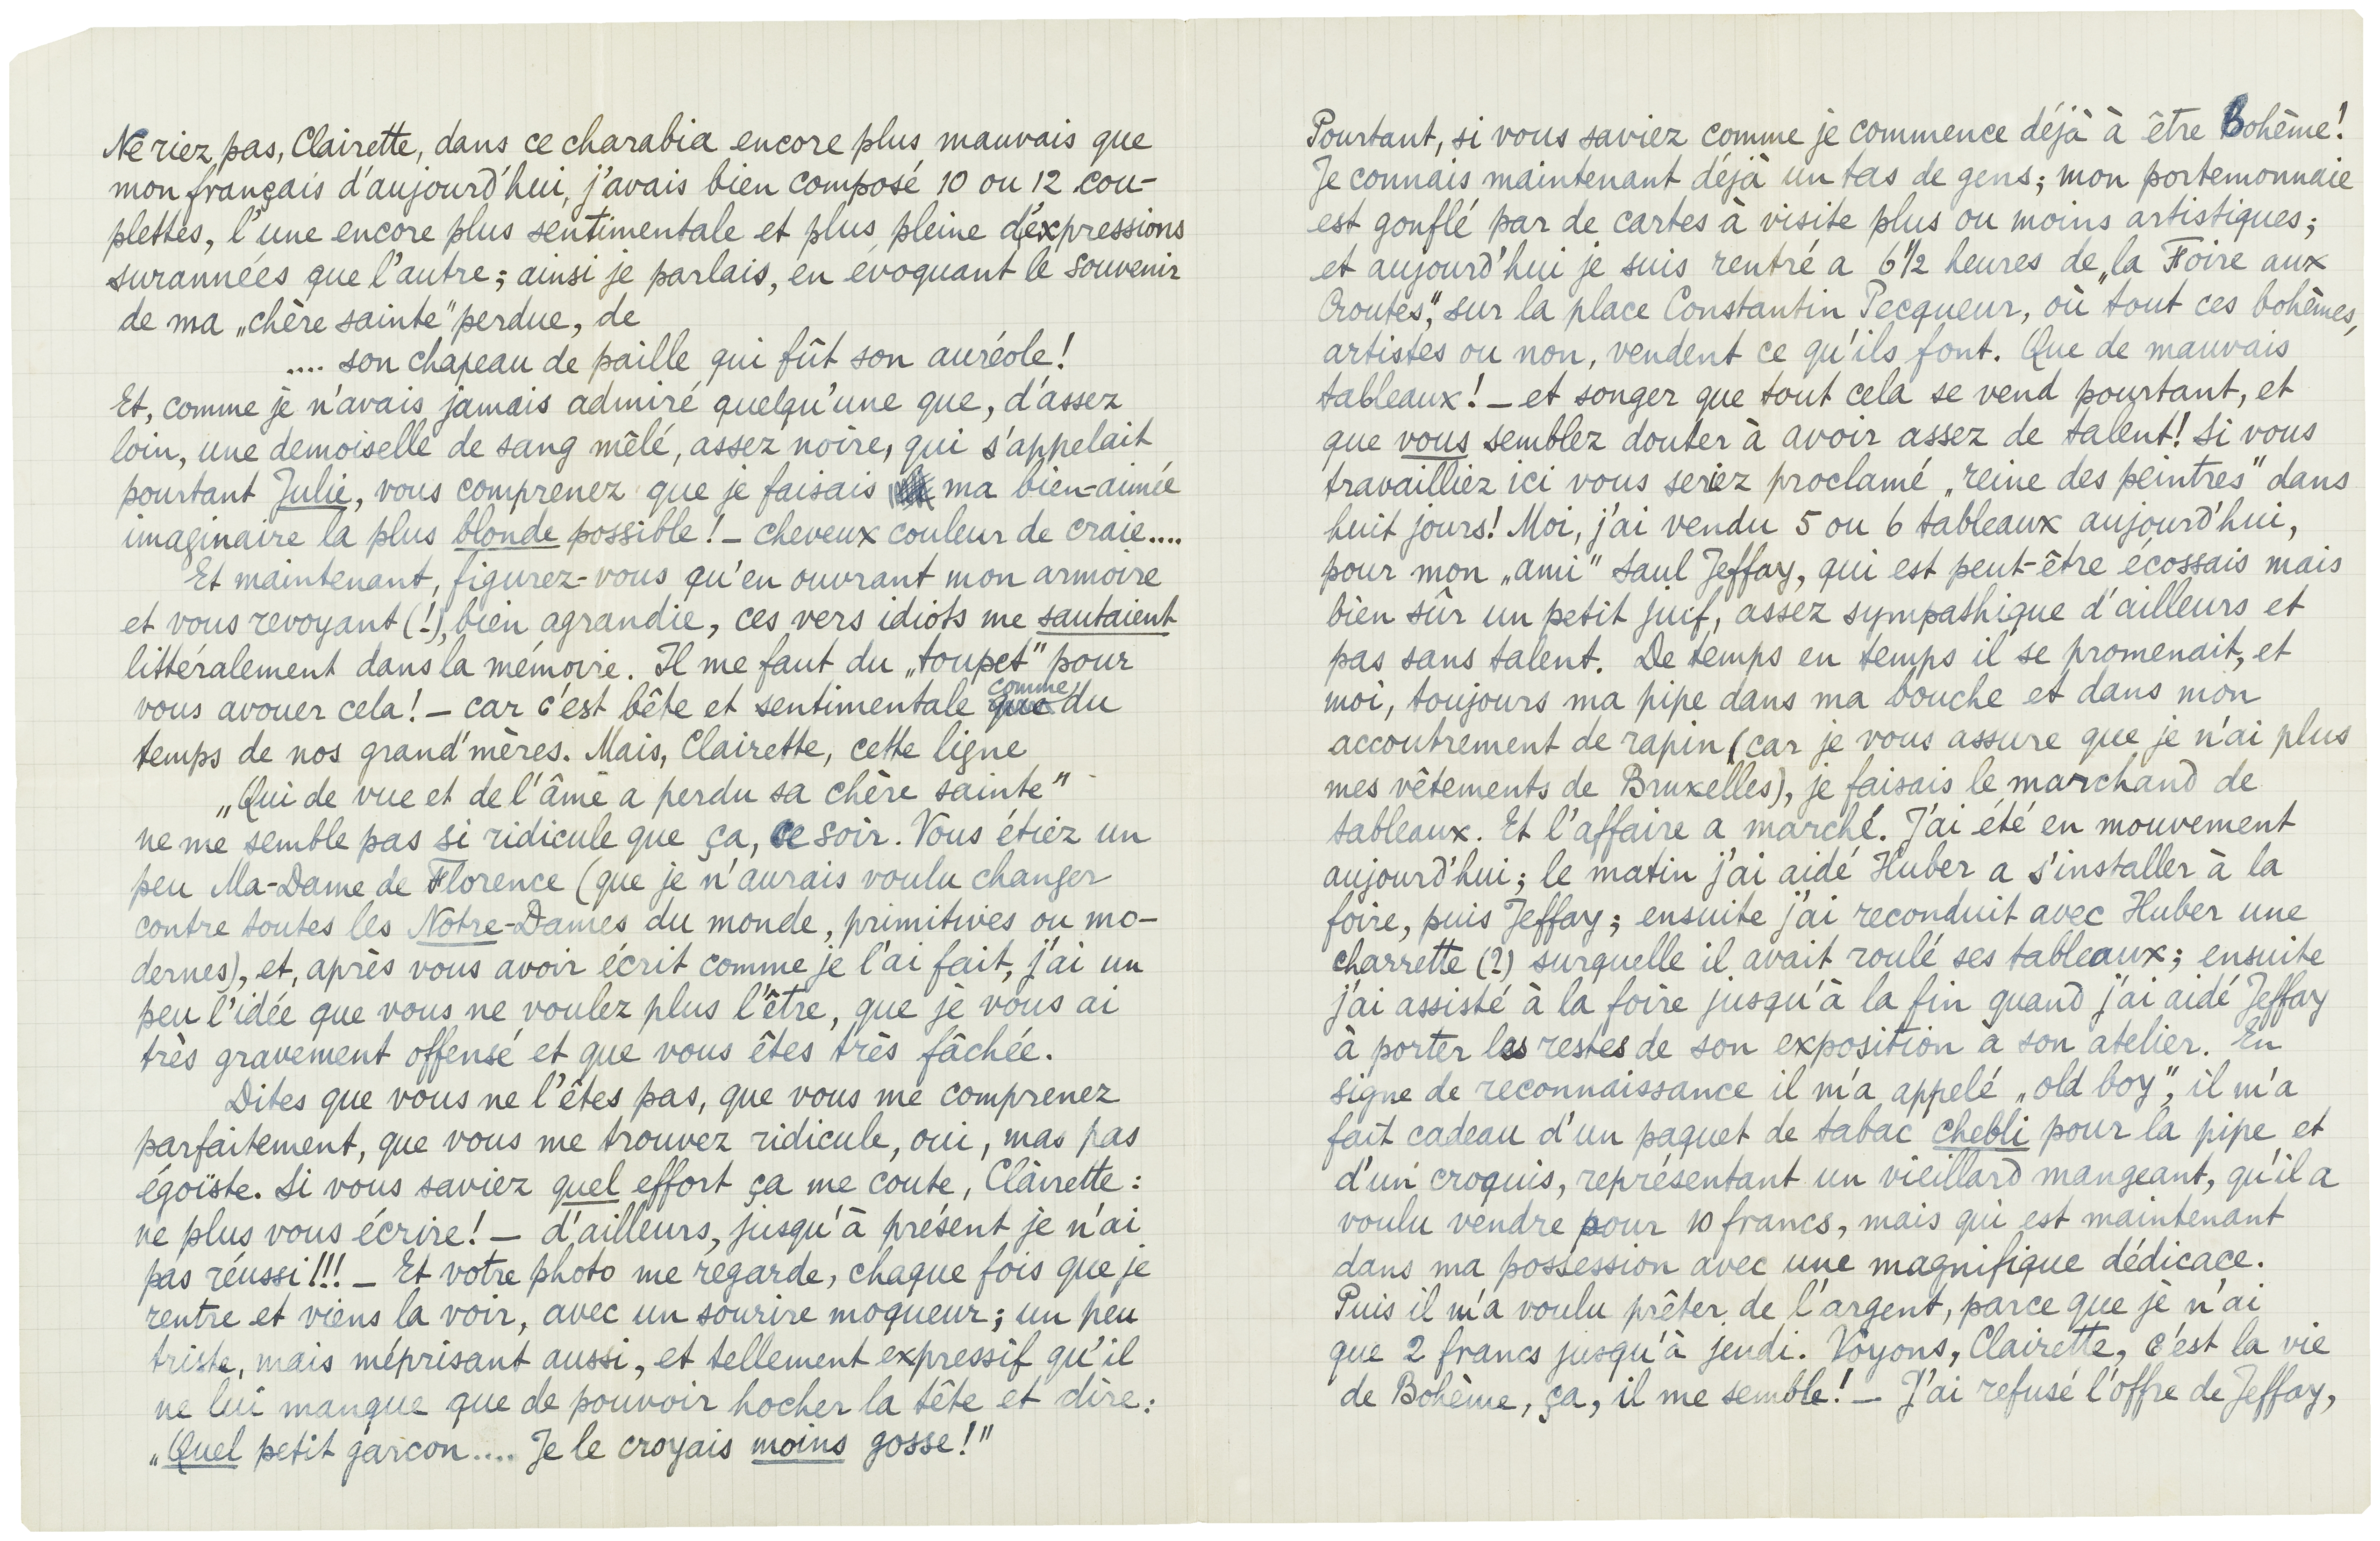 Ne riez pas, Clairette, dans ce charabia encore plus mauvais que
mon français d'aujourd'hui, j'avais bien composé 10 ou 12 cou-
plettes, l'une encore plus sentimentale et plus pleine d'éxpressions
surannéés que l'autre; ainsi je parlais, en évoquant le souvenir
de ma „chère sainte" perdue, de
.... son chapeau de paille qui fût son auréole!
Et, comme je n'avais jamais admiré quelqu'une que, d'assez
loin, une demoiselle de sang mêlé, assez noire, qui s'appelait
pourtant Julie, vous comprenez que je faisais ma bien-aimée
imaginaire la plus blonde possible! – cheveux couleur de craie....
Et maintenant, figurez-vous qu'en ouvrant mon armoire
et vous revoyant (!), bien agrandie, ces vers idiots me sautaient
littéralement dans la mémoire. Il me faut du „toupet" pour
vous avouer cela! – car c'est bête et sentimentale comme du
temps de nos grand'mères. Mais, Clairette, cette ligne
„Qui de vue et de l'âme a perdu sa chère sainte"
ne me semble pas si ridicule que ça, ce soir. Vous étiez un
peu Ma-Dame de Florence (que je n'aurais voulu changer
contre toutes les Notre-Dames du monde, primitives ou mo-
dernes), et, après vous avoir écrit comme je l'ai fait, j'ai un
peu l'idée que vous ne voulez plus l'être, que je vous ai
très gravement offensé et que vous êtes très fâchée.
Dites que vous ne l'êtes pas, que vous me comprenez
parfaitement, que vous me trouvez ridicule, oui, mas pas
égoïste. Si vous saviez quel effort ça me coute, Clairette:
ne plus vous écrire! – d'ailleurs, jusqu'à présent je n'ai
pas réussi!!! – Et votre photo me regarde, chaque fois que je
rentre et viens la voir, avec un sourire moqueur; un peu
triste, mais méprisant aussi, et tellement expressif qu'il
ne lui manque que de pouvoir hocher la tête et dire:
„Quel petit garcon.... Je le croyais moins gosse!"
Pourtant, si vous saviez comme je commence déjà à être Bohême!
Je connais maintenant déjà un tas de gens; mon portemonnaie
est gonflé par de cartes à visite plus ou moins artistiques;
et aujourd'hui je suis rentré a 6 1/2 heures de „la Foire aux
Croutes", sur la place Constantin Pecqueur, où tout ces bohêmes,
artistes ou non, vendent ce qu'ils font. Que de mauvais
tableaux! – et songer que tout cela se vend pourtant, et
que vous semblez douter à avoir assez de talent! Si vous
travailliez ici vous seriez proclamé „reine des peintres" dans
huit jours! Moi, j'ai vendu 5 ou 6 tableaux aujourd'hui,
pour mon „ami" Saul Jeffay, qui est peut-être écossais mais
bien sûr un petit juif, assez sympathique d'ailleurs et
pas sans talent. De temps en temps il se promenait, et
moi, toujours ma pipe dans ma bouche et dans mon
accoutrement de rapin (car je vous assure que je n'ai plus
mes vêtements de Bruxelles), je faisais le marchand de
tableaux. Et l'affaire a marché. J'ai été en mouvement
aujourd'hui; le matin j'ai aidé Huber a s'installer à la
foire, puis Jeffay; ensuite j'ai reconduit avec Huber une
charrette (?) surquelle il avait roulé ses tableaux; ensuite
j'ai assisté à la foire jusqu'à la fin quand j'ai aidé Jeffay
à porter les restes de son exposition à son atelier. En
signe de reconnaissance il m'a appelé „old boy", il m'a
fait cadeau d'un paquet de tabac chebli pour la pipe et
d'un croquis, représentant un vieillard mangeant, qu'il a
voulu vendre pour 10 francs, mais qui est maintenant
dans ma possession avec une magnifique dédicace.
Puis il m'a voulu prêter de l'argent, parce que je n'ai
que 2 francs jusqu'à jeudi. Voyons, Clairette, c'est la vie
de Bohème, ça, il me semble! – J'ai refusé l'offre de Jeffay,